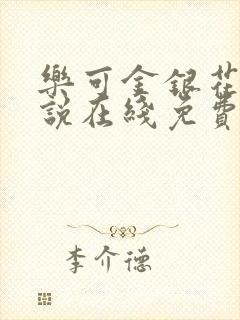 樂可金銀花
說在綫免費
李介德